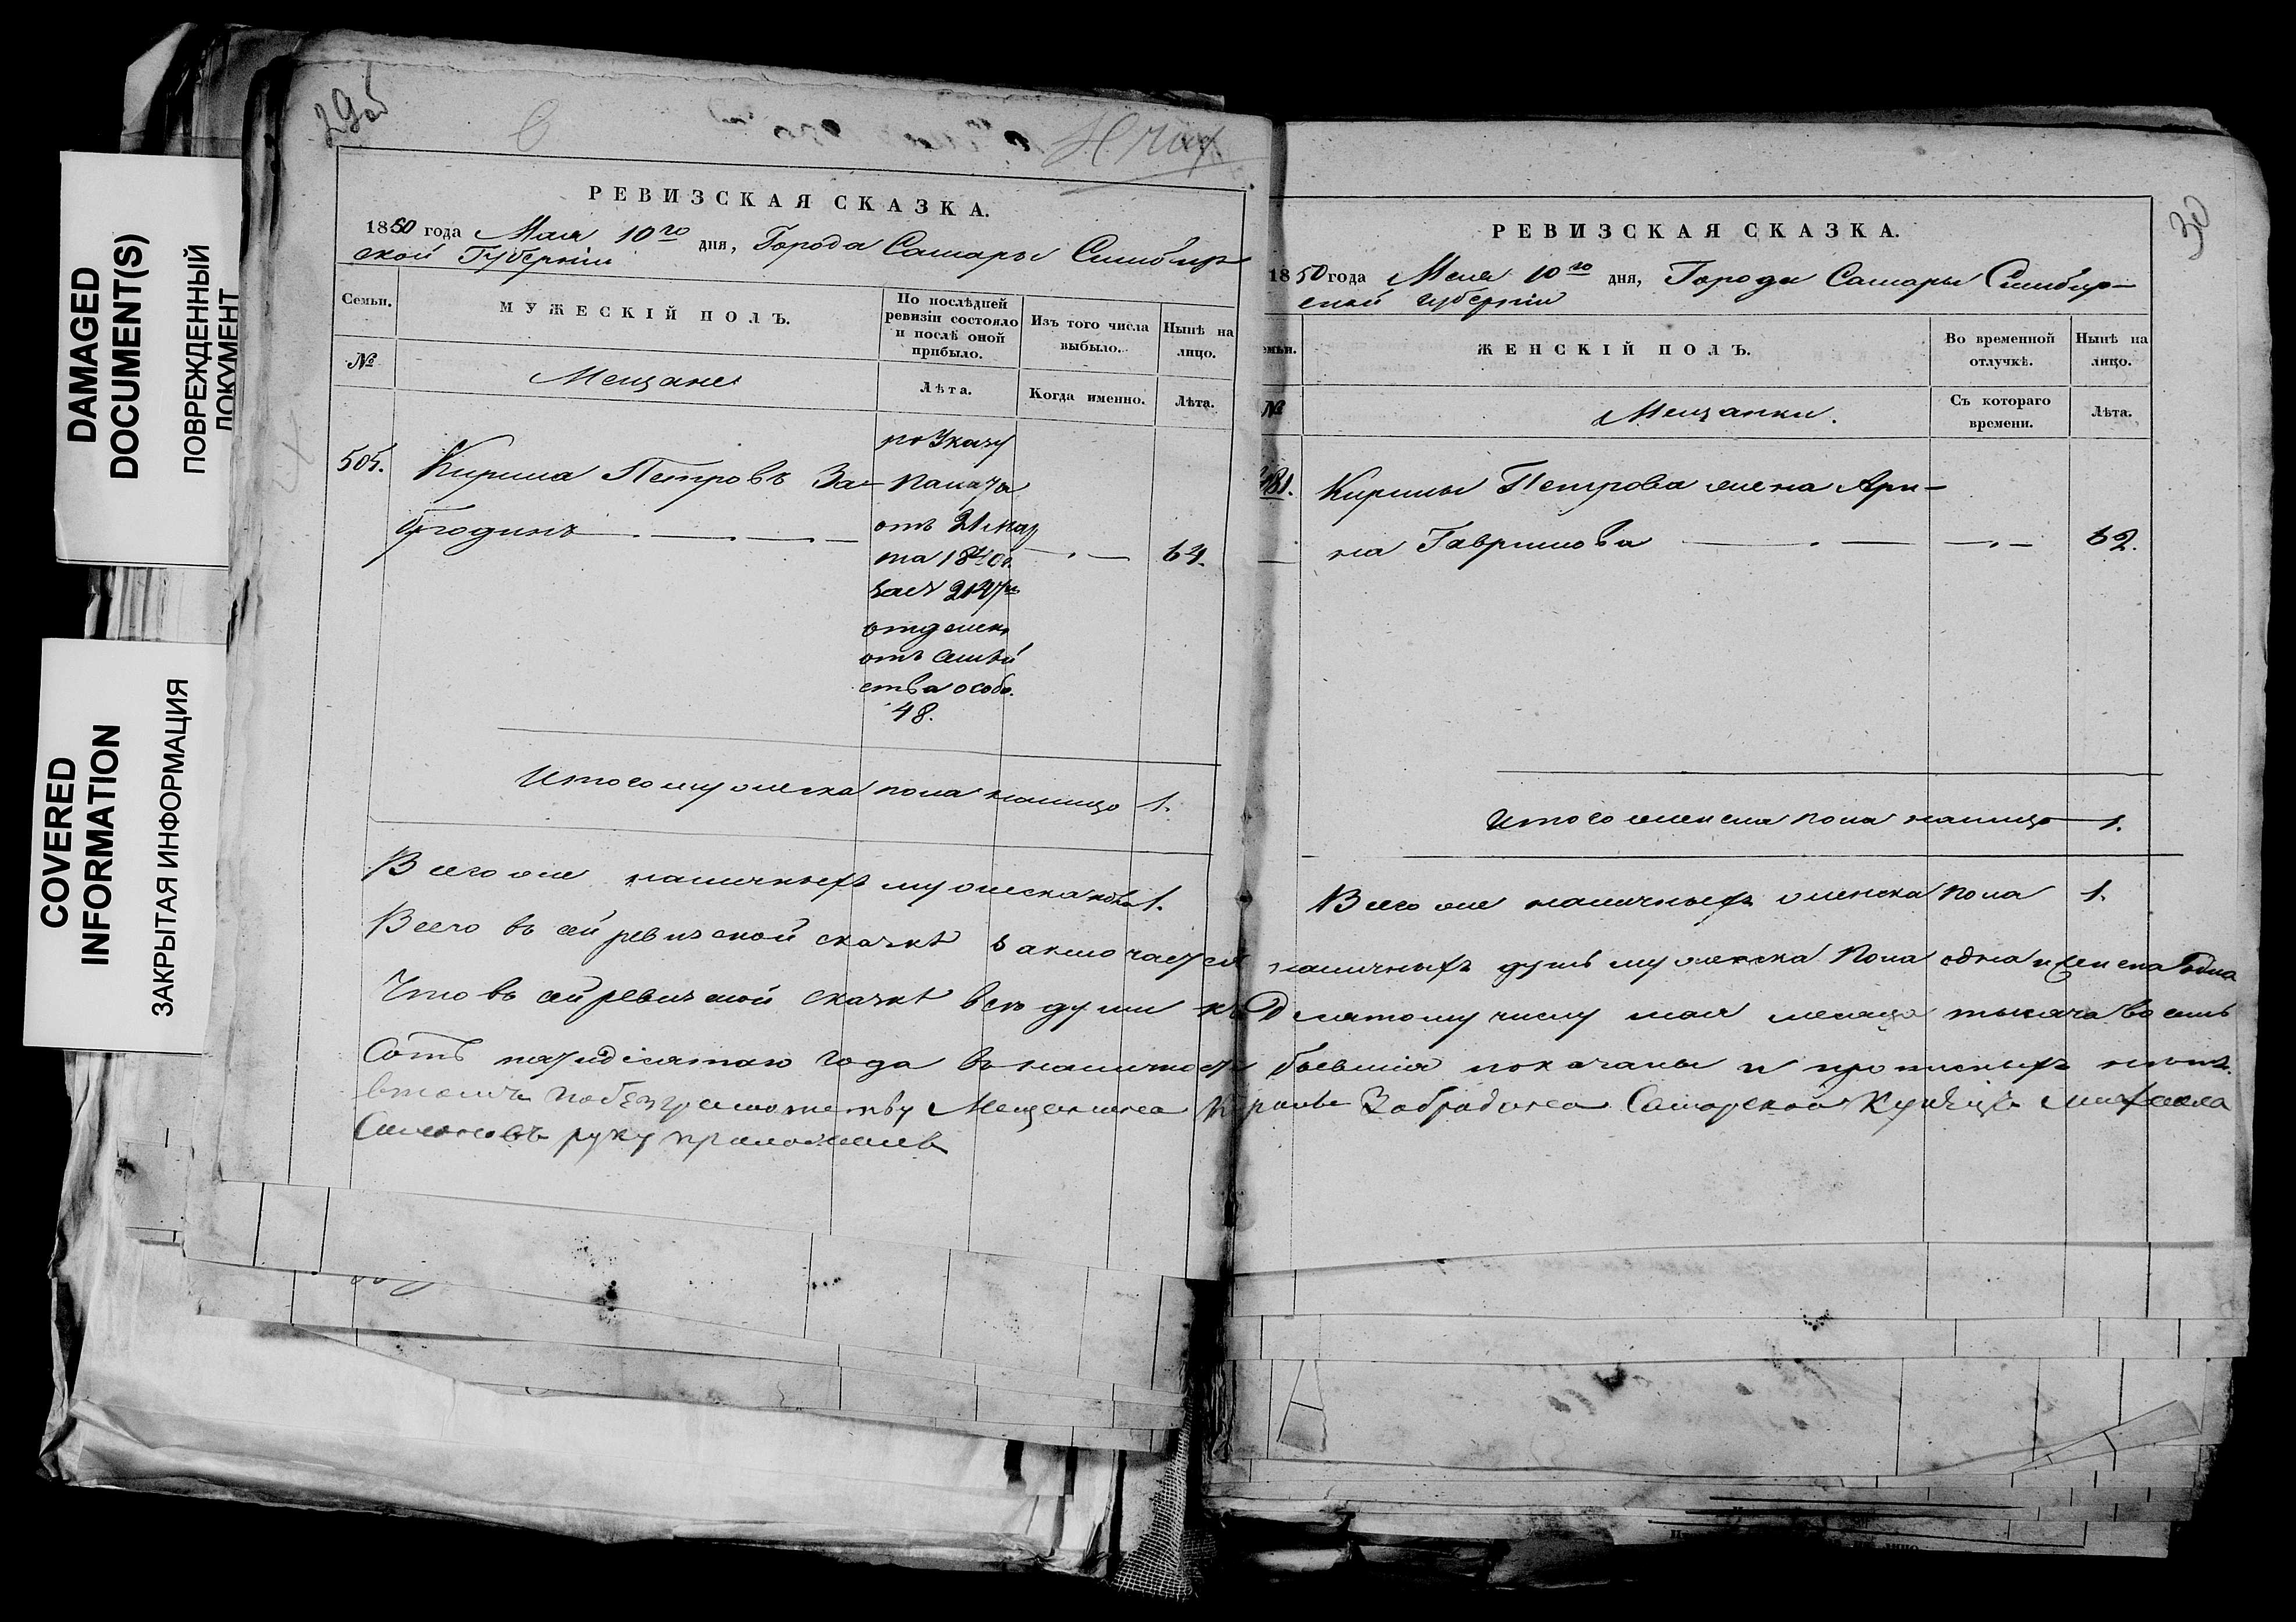 DAMAGED
DOCUMENT(S)
ПОВРЕЖДЕННЫЙ
ДОКУМЕНТ
COVERED
INFORMATION
ЗАКРЫТАЯ ИНФОРМАЦИЯ
29об
РЕВИЗСКАЯ СКАЗКА.
1850 года Мая 10го дня, Города Самары Симбир
ской Губерніи
Семьи.
№
МУЖЕСКІЙ ПОЛЪ.
Мещане
По послѣдней
ревизіи состояло
и послѣ оной
прибыло.
Лѣта.
Изъ того числа
выбыло.
Когда именно.
Нынѣ на
лицо.
Лѣта.
505. Кирила Петровъ За-
по Указу
Палаты
отъ 21
та 1840
за № 2147
отделен
отъ семей
ства особо.
48.
64.
Итого мужеска пола налицо 1.
Всего же наличныхъ мужеска пола 1.
30
РЕВИЗСКАЯ СКАЗКА.
1850 года Мая 10го дня, Города Самары Симбир-
ской губерніи
емьи.
№
ЖЕНСКІЙ ПОЛЪ.
Мещанки.
Во временной
отлучкѣ.
Съ котораго
времени.
Нынѣ на
лицо.
Лѣта.
Кирилы Петрова жена Ари-
на Гаврилова 62.
Итого женска пола налицо 1.
Всего же наличныхъ женска пола 1.
Всего въ сей ревизской сказкѣ заключается наличныхъ душъ мужеска пола одна и женска одна
Что въ сей ревизской сказкѣ всѣ души къ Десятому числу мая месяца тысяча восемь
Сотъ пятидесятаго года въ наличности бывшія показаны и прописныхъ нетъ.
втомъ побезграмотству Мещанина Кирилы Самарской Купецъ
руку приложилъ